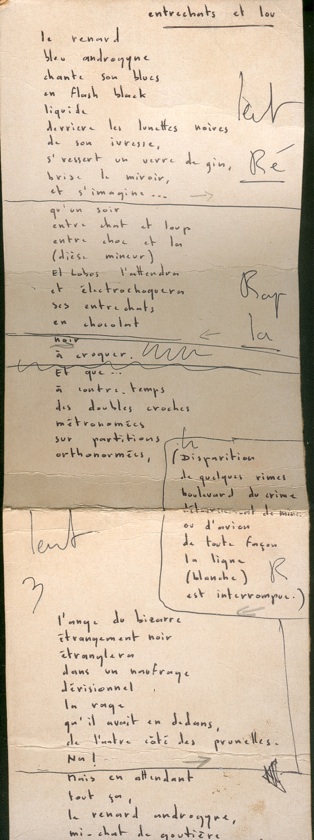 entrechats et lou
le renard
bleu androgyne
chante son blues
en flash black
liquide
derrière les lunettes noires
de son ivresse,
s'ressert un verre de gin,
brise le miroir,
et s'imagine...
lent
Ré
qu'un soir
entre chat et loup
entre choc et la
(dièse mineur)
El Lobos l'attendra
et électrochoquera
ses entrechats
en chocolat
noir
à croquer.
Rap
la
Et que...
à contre-temps
des doubles croches
métronomées
sur partitions
orthonormées,
(Disparition
de quelques rimes
boulevard du crime
détournement de
ou d'avion
de toute façon
la ligne
(blanche)
est interrompue.)
R
lent
3
l'ange du bizarre
étrangement noir
étranglera
dans un naufrage
dérisionnel
la rage
qu'il avait en dedans,
de l'autre côté des prunelles.
Na!
Mais en attendant
tout ça,
le renard androgyne,
mi-chat de goutière